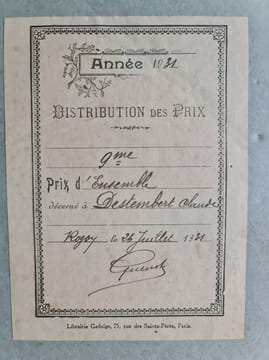 Année 1931
DISTRIBUTION DES PRIX
9me
Prix d'Ensemble
décerné à Destembert Claude
Rozoy le 26 Juillet 1931
Librairie Gedalge, 75, rue des Saints-Pères, Paris.